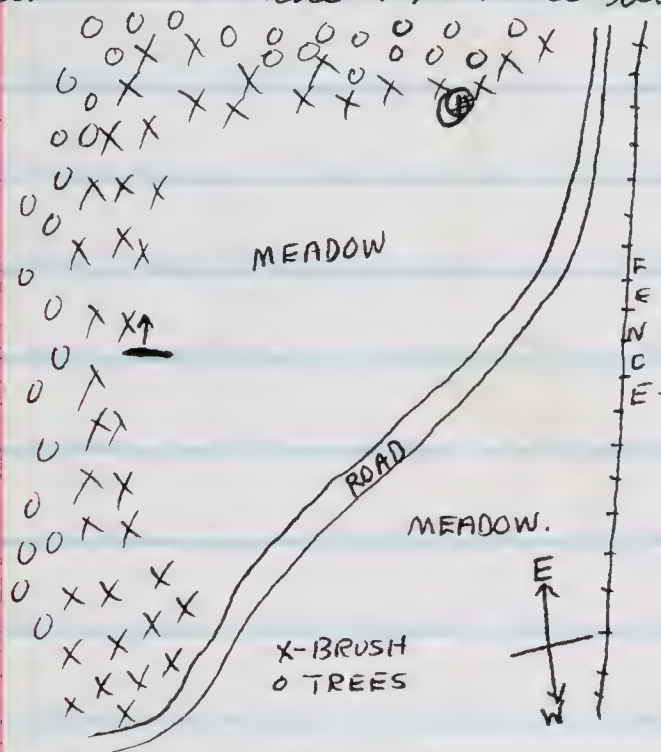 MEADOW
FENCE
ROAD
MEADOW.
E
X-BRUSH
O TREES
W